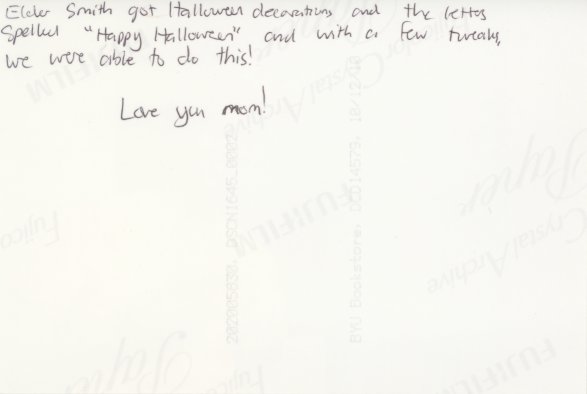 Elder Smith got Halloween decorations and the lettos
Spelled "Happy Halloween" and with a few tweaks,
we were able to do this!
Love you mom!
FUJIFILM
Crystal Archive
Paper
Fujico
202005830, DSCN1645_0002
BYU Bookstore, DCD14579, 18/12/10
FUJIFILM
Crystal Archive
Paper
Fujico
FUJIFILM